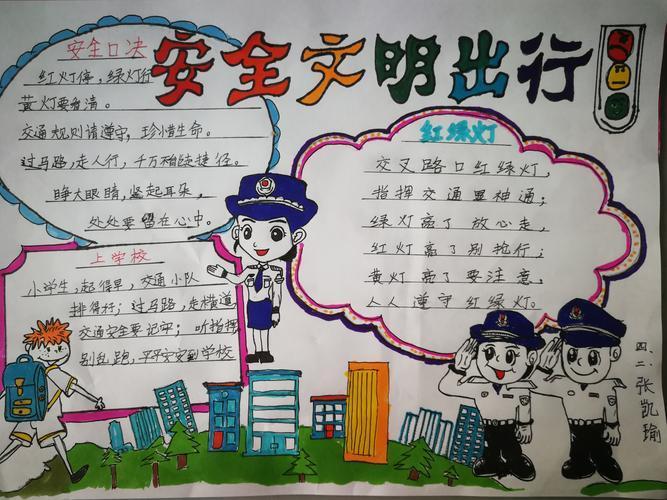 安全文明出行
安全口决
红灯停，绿灯行
黄灯要看清。
交通规则请遵守，珍惜生命。
过马路，走人行，千万别走捷径。
睁大眼睛，竖起耳朵，
处处要留在心中。
红绿灯
交叉路口红绿灯，
指挥交通显神通；
绿灯亮了放心走，
红灯亮了别抢行；
黄灯亮了要注意，
人人遵守红绿灯。
上学校
小学生，起得早，交通小队
排得好；过马路，走横道
交通安全要记牢；听指挥
别乱跑，平平安安到学校
四、二、张凯瑜